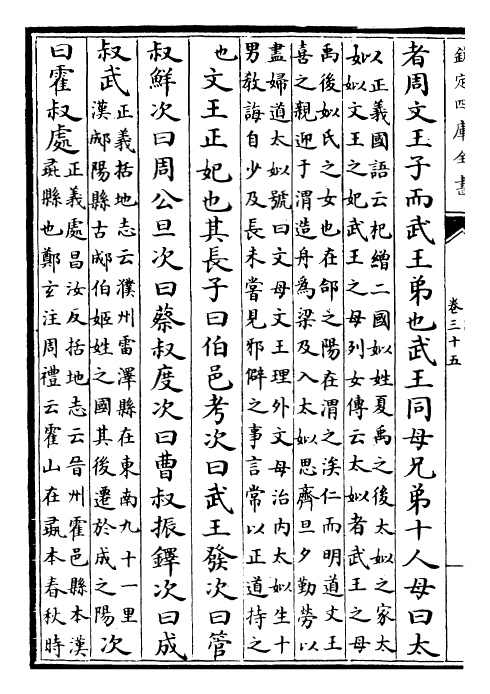 欽定四庫全書
卷三十五
者周文王子而武王弟也武王同母兄弟十人母曰太
姒正義國語云杞繒二國姒姓夏禹之後太姒之家太
姒文王之妃武王之母列女傳云太姒者武王之母
禹後姒氏之女也在郃之陽在渭之涘仁而明道文王
喜之親迎于渭造舟為梁及入太姒思齊旦夕勤勞以
盡婦道太姒號曰文母文王理外文母治内太姒生十
男教誨自少及長未嘗見邪僻之事言常以正道持之
也文王正妃也其長子曰伯邑考次曰武王發次曰管
叔鮮次曰周公旦次曰蔡叔度次曰曹叔振鐸次曰成
叔武正義括地志云濮州雷澤縣在東南九十一里
漢郕陽縣古郕伯姬姓之國其後遷於成之陽次
曰霍叔處正義處昌汝反括地志云晉州霍邑縣本漢
彘縣也鄭玄注周禮云霍山在彘本春秋時